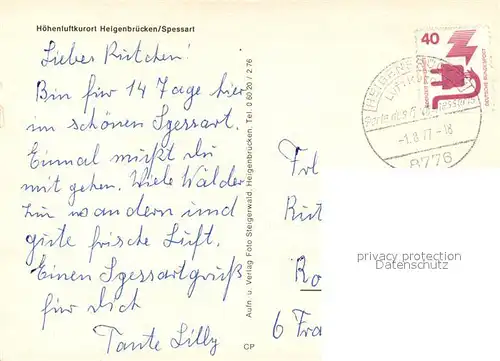 Höhenluftkurort Heigenbrücken/Spessart
Liebes Rutchen!
Bin für 14 Tage hier
im schönen Spessart.
Einmal mußt du
mit gehen. Viele Wälder
zum wandern und
gute frische Luft.
Einen Spessartgruß
für dich
Tante Lilly
Aufn. u. Verlag Foto Steigerwald, Heigenbrücken, Tel. 0 60 20 / 2 76
CP
40
DEUTSCHE BUNDESPOST
-1.8.77-18
8776
Frl
Rut
Ro
6 Fra
privacy protection
Datenschutz